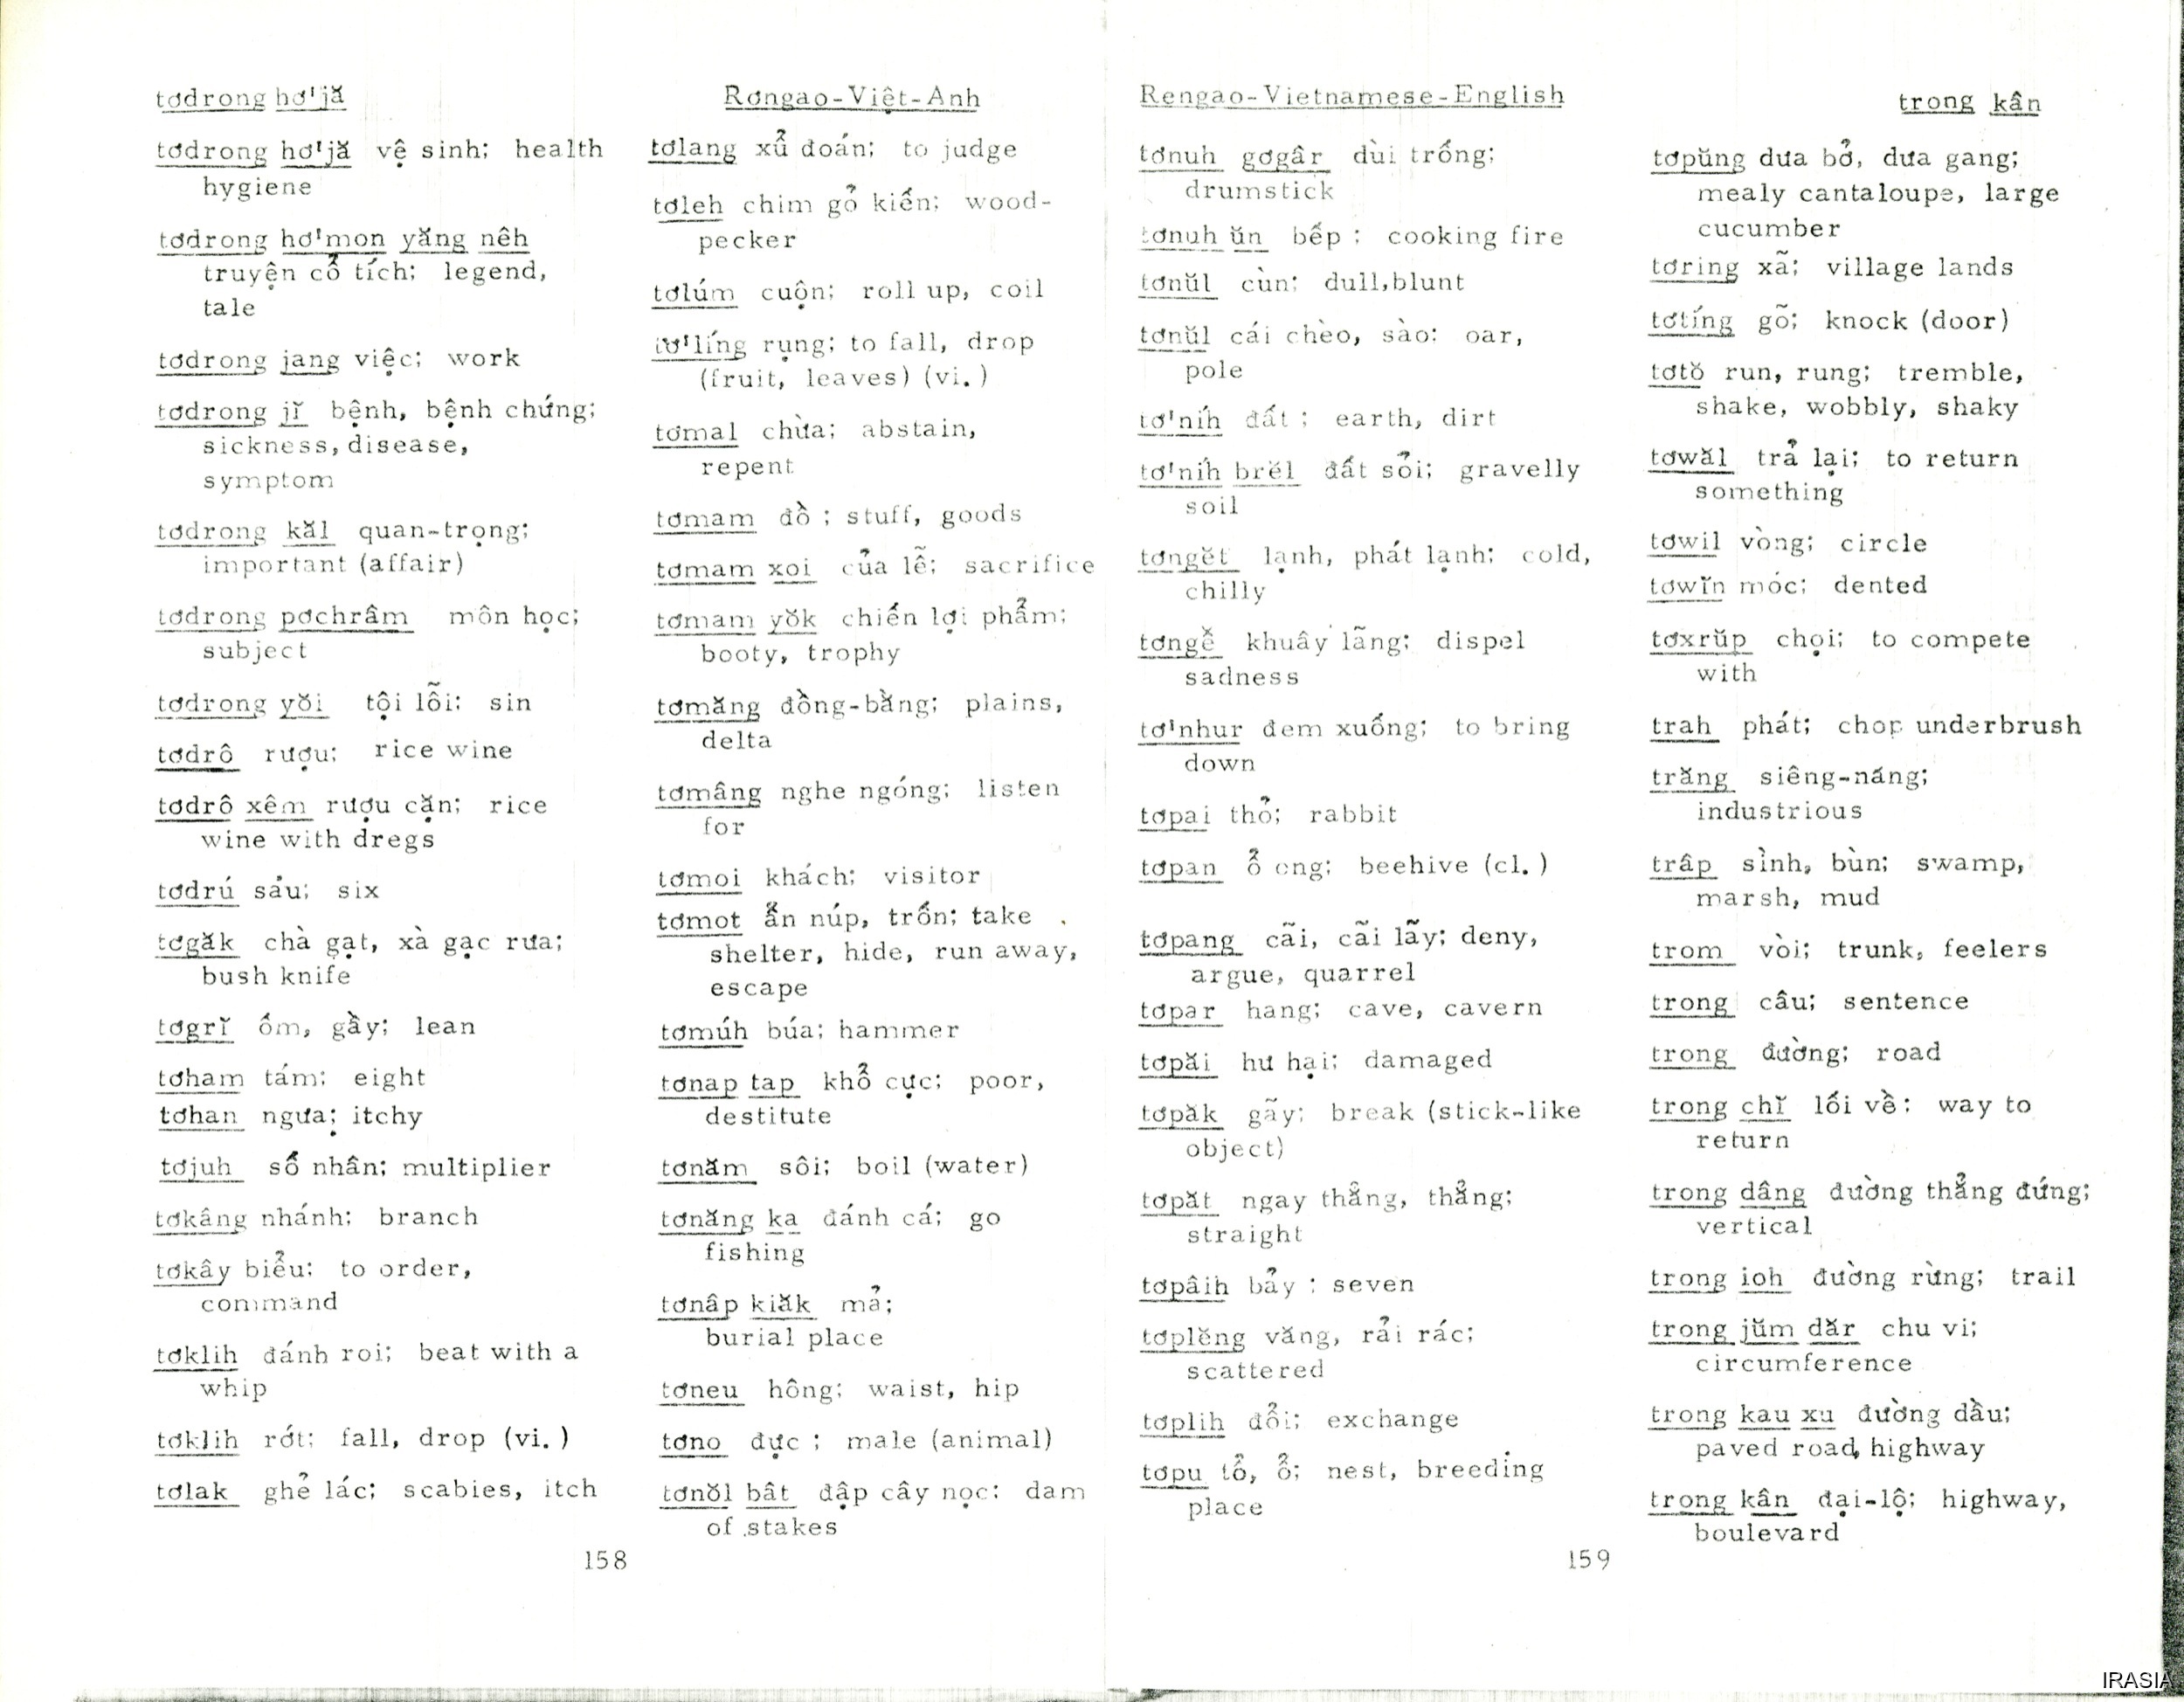 tơdrong hơ'jă
Rơngao-Việt-Anh
tơdrong hơ'jă vệ sinh; health
hygiene
tơdrong hơ'mon yăng nêh
truyện cổ tích; legend,
tale
tơdrong jang việc; work
tơdrong jĭ bệnh, bệnh chứng;
sickness, disease,
symptom
tơdrong kăl quan-trọng;
important (affair)
tơdrong pơchrâm môn học;
subject
tơdrong yŏi tội lỗi; sin
tơdrô rượu; rice wine
tơdrô xêm rượu cặn; rice
wine with dregs
tơdrú sáu; six
tơgăk chà gạt, xà gạc rưa;
bush knife
tơgrĭ ốm, gầy; lean
tơham tám; eight
tơhan ngưạ; itchy
tơjuh số nhân; multiplier
tơkâng nhánh; branch
tơkây biểu; to order,
command
tơklih đánh roi; beat with a
whip
tơklih rớt; fall, drop (vi.)
tơlak ghẻ lác; scabies, itch
tơlang xử đoán; to judge
tơleh chim gỏ kiến; wood-
pecker
tơlúm cuộn; roll up, coil
tơ'líng rụng; to fall, drop
(fruit, leaves) (vi.)
tơmal chừa; abstain,
repent
tơmam đồ ; stuff, goods
tơmam xoi của lễ; sacrifice
tơmam yŏk chiến lợi phẩm;
booty, trophy
tơmăng đồng-bằng; plains,
delta
tơmâng nghe ngóng; listen
for
tơmoi khách; visitor
tơmot ẩn núp, trốn; take
shelter, hide, run away,
escape
tơmúh búa; hammer
tơnap tap khổ cực; poor,
destitute
tơnăm sôi; boil (water)
tơnăng ka đánh cá; go
fishing
tơnâp kiăk mả;
burial place
tơneu hông; waist, hip
tơno đực ; male (animal)
tơnŏl bât đập cây nọc; dam
of stakes
158
Rengao-Vietnamese-English
trong kân
tơnuh gơgâr dùi trống;
drumstick
tơnuh ŭn bếp ; cooking fire
tơnŭl cùn; dull,blunt
tơnŭl cái chèo, sào: oar,
pole
tơ'níh đất ; earth, dirt
tơ'níh brĕl đất sỏi; gravelly
soil
tơngĕt lạnh, phát lạnh; cold,
chilly
tơngê̆ khuây lãng; dispel
sadness
tơ'nhur đem xuống; to bring
down
tơpai thỏ; rabbit
tơpan ổ ong; beehive (cl.)
tơpang cãi, cãi lẫy; deny,
argue, quarrel
tơpar hang; cave, cavern
tơpăi hư hại; damaged
tơpăk gãy; break (stick-like
object)
tơpăt ngay thẳng, thẳng;
straight
tơpâih bảy ; seven
tơplĕng văng, rải rác;
scattered
tơplih đổi; exchange
tơpu tổ, ổ; nest, breeding
place
tơpŭng dưa bở, dưa gang;
mealy cantaloupe, large
cucumber
tơring xã; village lands
tơtíng gõ; knock (door)
tơtŏ run, rung; tremble,
shake, wobbly, shaky
tơwăl trả lại; to return
something
tơwil vòng; circle
tơwĭn móc; dented
tơxrŭp chọi; to compete
with
trah phát; chop underbrush
trăng siêng-năng;
industrious
trâp sình, bùn; swamp,
marsh, mud
trom vòi; trunk, feelers
trong câu; sentence
trong đường; road
trong chĭ lối về; way to
return
trong dâng đường thẳng đứng;
vertical
trong ioh đường rừng; trail
trong jŭm dăr chu vi;
circumference
trong kau xu đường dầu;
paved road, highway
trong kân đại-lộ; highway,
boulevard
159
IRASIA